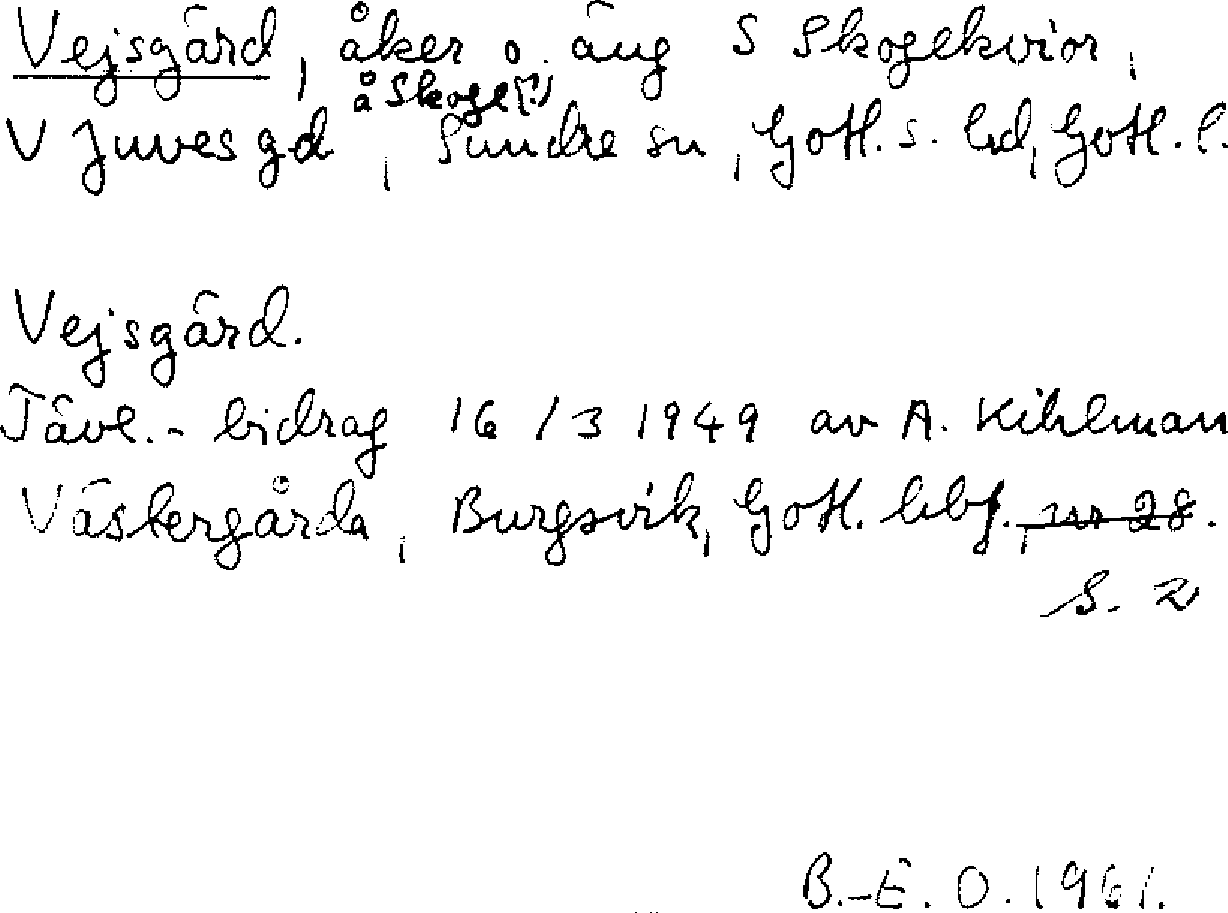 Vejsgärd, åker o. äng S Skogekvior,
å Skoge(?)
V Juves gd, Sundre sn, Gotl. s. hd, Gotl. l.
Vejsgärd.
Tävl.- bidrag 16/3 1949 av A. Kihlman
Västergårda, Burgsvik, Gotl. bbf., nr 28.
S. 2
B.-E. O. 1961.